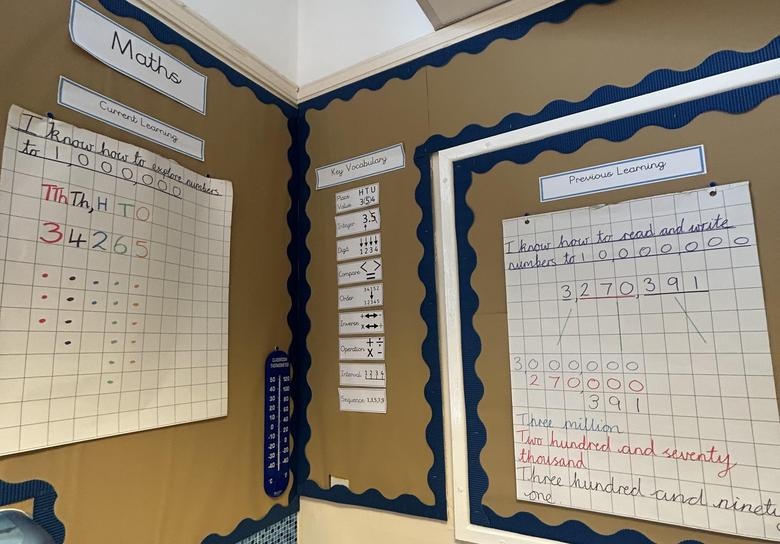 Maths
Current Learning
I know how to explore numbers
to 1,000,000
TTh Th, H T O
3 4 2 6 5
CLASSROOM
THERMOMETER
Key Vocabulary
Place Value H T U 3 5 4
Integer 3.5
Digit 1 2 3 4
Compare < > =
Order 3 4 1 5 2 1 2 3 4 5
Inverse + - x ÷
Operation + ÷ x -
Interval 1 2 3 4
Sequence 1,3,5,7,9
Previous Learning
I know how to read and write
numbers to 1 0 0 0 0 0 0 0
3,270,391
3 0 0 0 0 0 0
2 7 0,0 0 0
3 9 1
Three million
Two hundred and seventy
thousand
Three hundred and ninety
one.